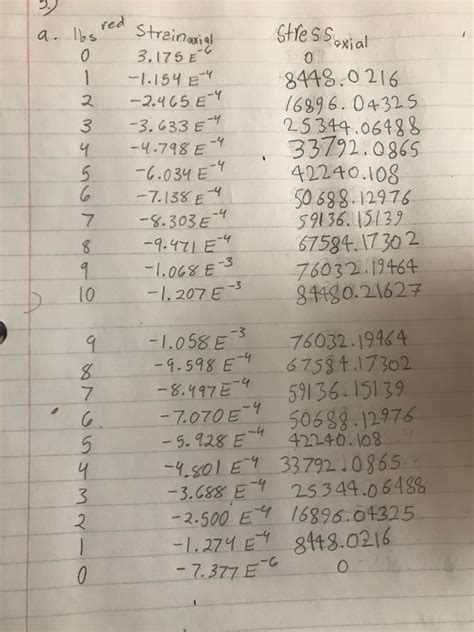 5.)
a. lbs red Strain axial Stress axial
0 3.175 E^-6 0
1 -1.154 E^-4 8448.0216
2 -2.465 E^-4 16896.04325
3 -3.633 E^-4 25344.06488
4 -4.798 E^-4 33792.0865
5 -6.034 E^-4 42240.108
6 -7.138 E^-4 50688.12976
7 -8.303 E^-4 59136.15139
8 -9.471 E^-4 67584.17302
9 -1.068 E^-3 76032.19464
10 -1.207 E^-3 84480.21627
9 -1.058 E^-3 76032.19464
8 -9.598 E^-4 67584.17302
7 -8.497 E^-4 59136.15139
6 -7.070 E^-4 50688.12976
5 -5.928 E^-4 42240.108
4 -4.801 E^-4 33792.0865
3 -3.688 E^-4 25344.06488
2 -2.500 E^-4 16896.04325
1 -1.274 E^-4 8448.0216
0 -7.377 E^-6 0